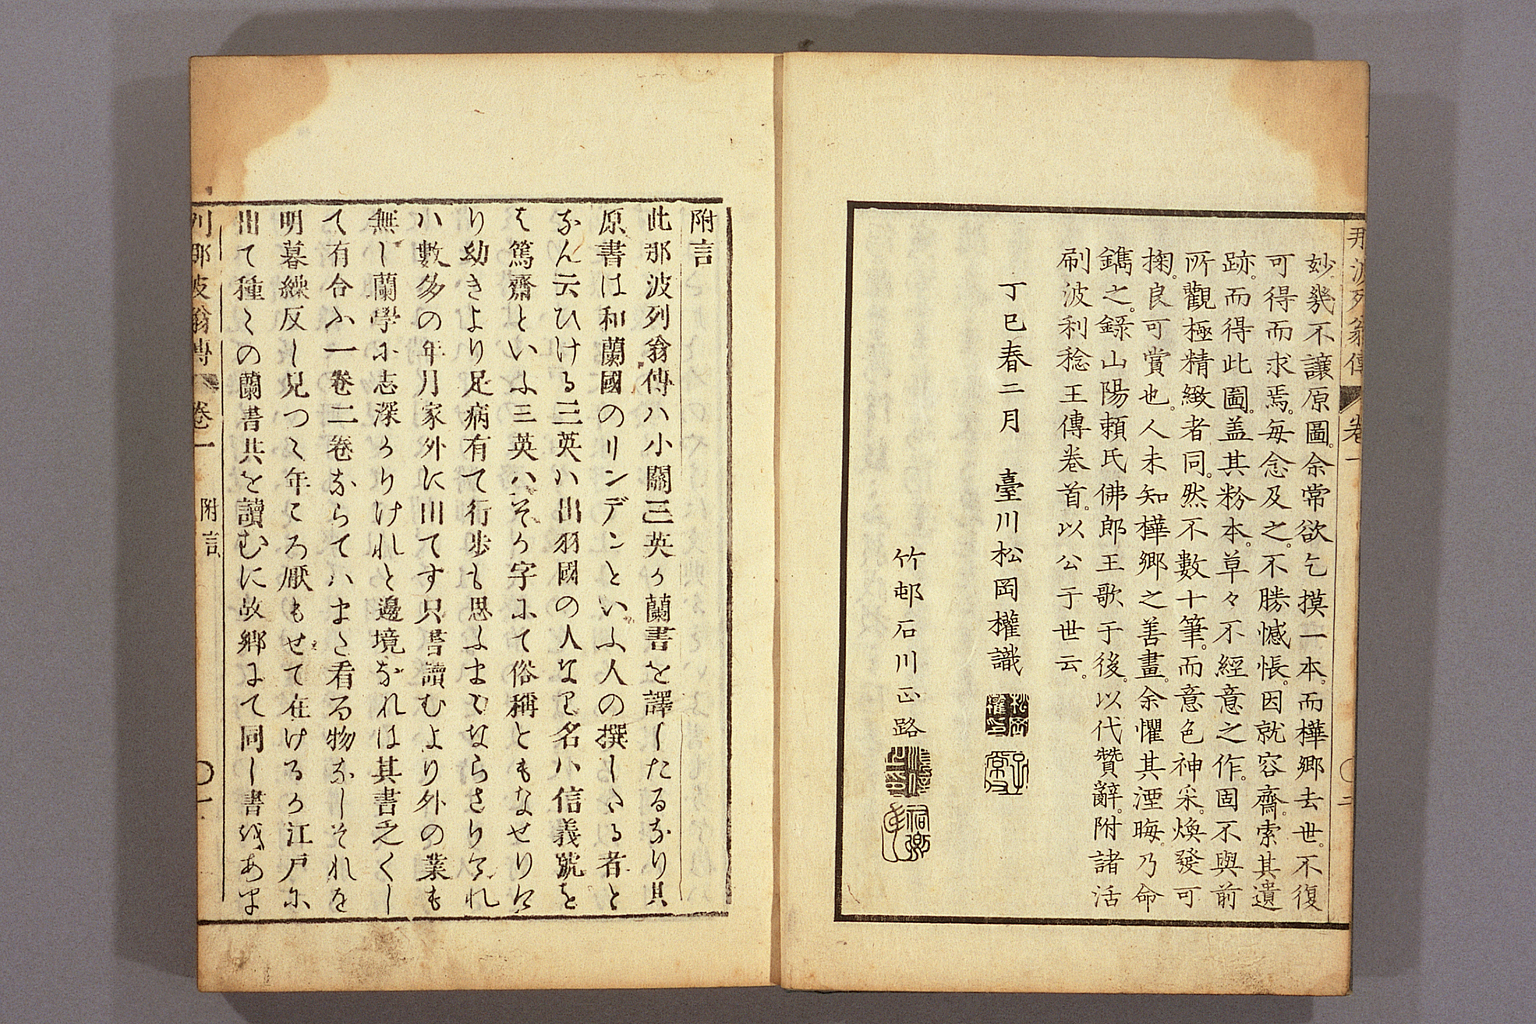 那波列翁傳 卷一 〇二
妙。幾不讓原圖。余常欲乞摸一本。而樺鄉去世。不復
可得而求焉。每念及之。不勝憾悵。因就容齋。索其遺
跡。而得此圖。盖其粉本。草々不經意之作。固不與前
所觀極精緻者同。然不數十筆。而意色神采。煥發可
掬。良可賞也。人未知樺鄉之善畫。余懼其湮晦。乃命
鐫之。錄山陽賴氏佛郎王歌于後。以代贊辭。附諸活
刷波利稔王傳卷首。以公于世云。
丁巳春二月 臺川松岡權識
竹邨石川正路
附言
此那波列翁傳ハ小關三英か蘭書を譯したるなり其
原書は和蘭國のリンデンといふ人の撰しゝる者と
なん云ひける三英ハ出羽國の人なり名ハ信義號を
は篤齋といふ三英ハそか字にて俗稱ともなせりけ
り幼きより足病有て行步も思ふまゝならさりけれ
ハ數多の年月家外に出てす只書讀むより外の業も
無し蘭學に志深かりけれと邊境なれは其書乏くし
て有合ふ一卷二卷ならてハまゝ看る物なしそれを
明暮繰反し見つゝ年ころ厭もせて在けるか江戶に
出て種々の蘭書共を讀むに故鄉にて同し書をあま
列那波翁傳 卷一 附言 〇一